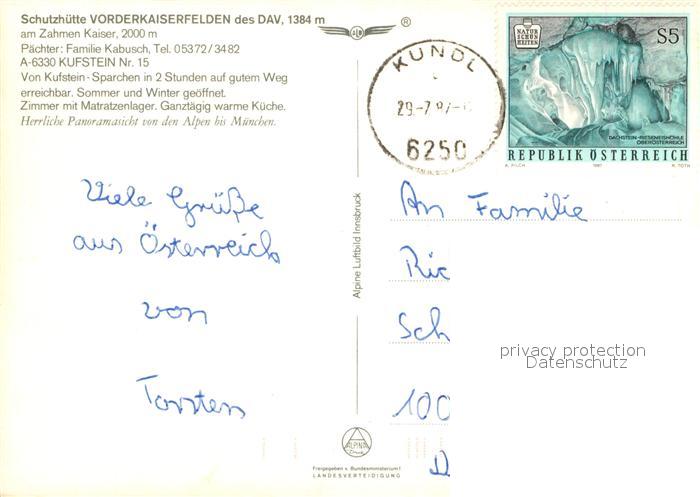 Schutzhütte VORDERKAISERFELDEN des DAV, 1384 m
am Zahmen Kaiser, 2000 m
Pächter: Familie Kabusch, Tel. 05372/3482
A-6330 KUFSTEIN Nr. 15
Von Kufstein-Sparchen in 2 Stunden auf gutem Weg
erreichbar. Sommer und Winter geöffnet.
Zimmer mit Matratzenlager. Ganztägig warme Küche.
Herrliche Panoramasicht von den Alpen bis München.
Viele Grüße
aus Österreich
von
Torsten
Alpine Luftbild Innsbruck
ALPINA
Druck
Freigegeben v. Bundesministerium f.
LANDESVERTEIDIGUNG
®
KUNDL
29.-7.87-
6250
NATUR
SCHÖN
HEITEN
S5
DACHSTEIN-RIESENEISHÖHLE
OBERÖSTERREICH
REPUBLIK ÖSTERREICH
A. PILCH 1987 K. TOTH
An Familie
Ric
Sch
100
D
privacy protection
Datenschutz